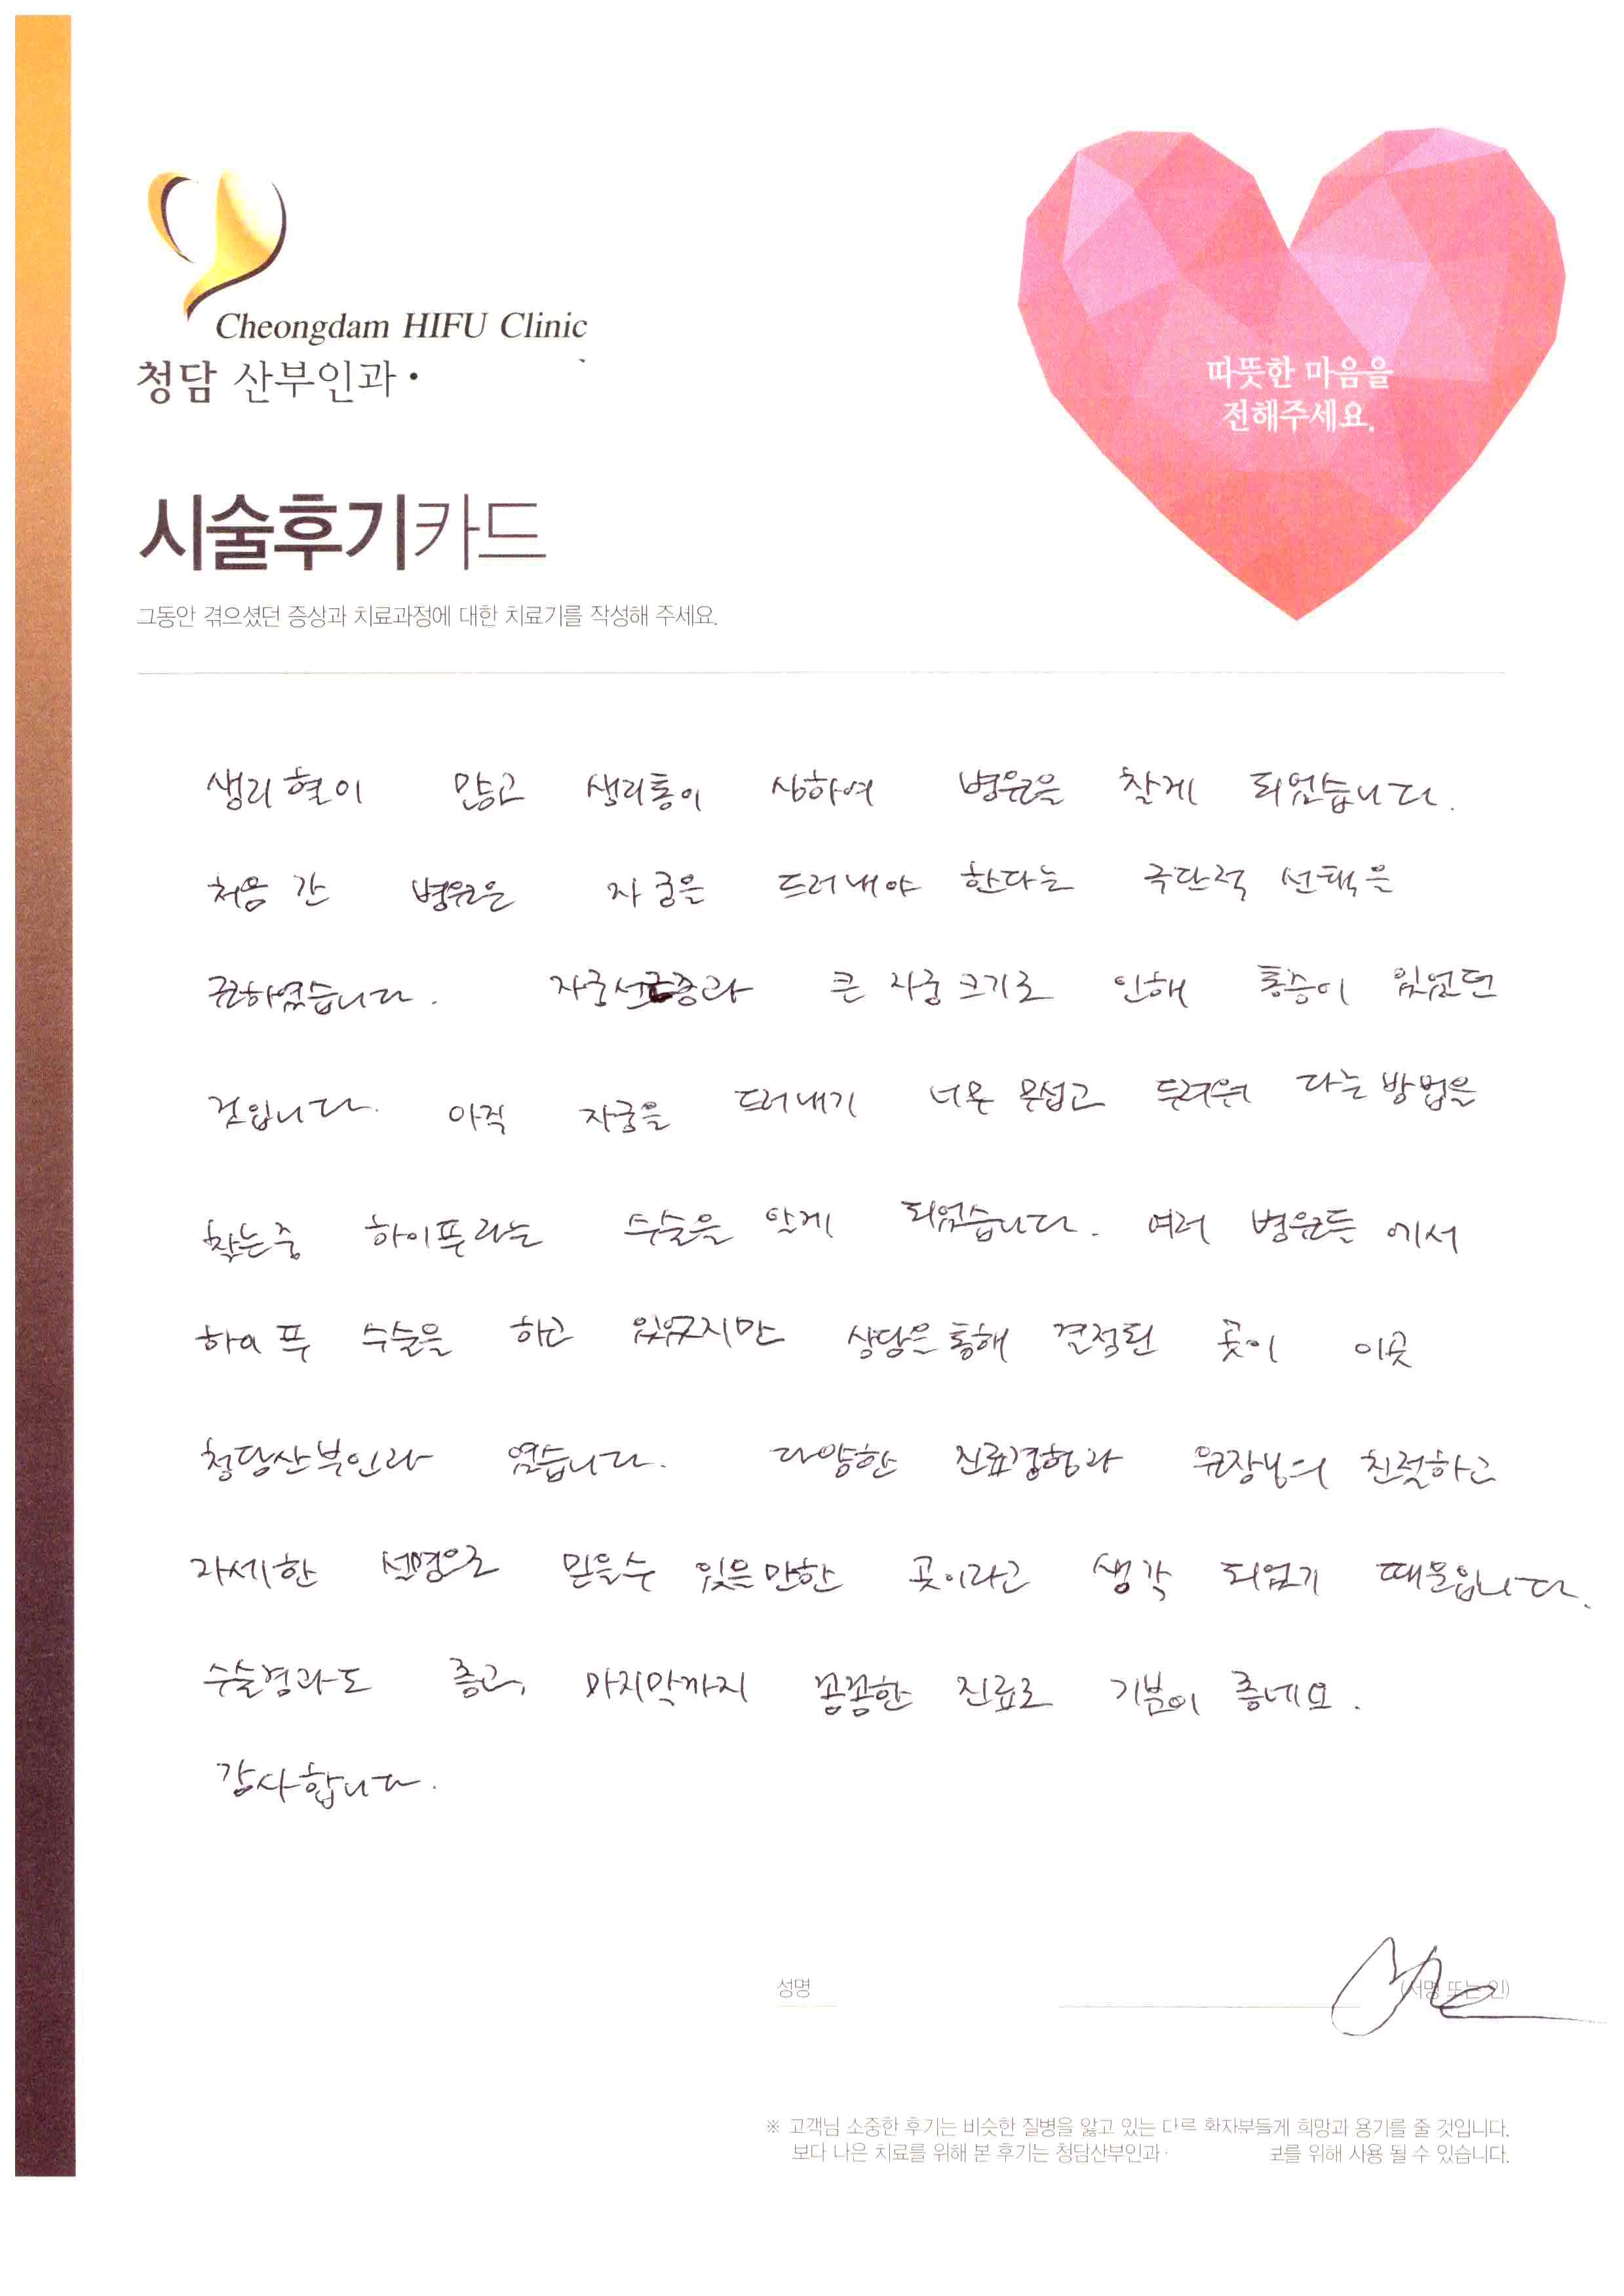 Cheongdam HIFU Clinic
청담 산부인과·
따뜻한 마음을
전해주세요.
시술후기카드
그동안 겪으셨던 증상과 치료과정에 대한 치료기를 작성해 주세요.
생리혈이 많고 생리통이 심하여 병원을 찾게 되었습니다.
처음 간 병원은 자궁을 드러내야 한다는 극단적 선택을
권하였습니다. 자궁선근종과 큰 자궁 크기로 인해 통증이 있었던
것입니다. 아직 자궁을 드러내기 너무 무섭고 두려워 다는 방법을
찾는중 하이푸라는 수술을 알게 되었습니다. 여러 병원들 에서
하이푸 수술을 하고 있었지만 상담을 통해 결정된 곳이 이곳
청담산부인과 였습니다. 다양한 진료경험과 원장님의 친절하고
자세한 설명으로 믿을수 있을만한 곳이라고 생각 되었기 때문입니다.
수술결과도 좋고, 마지막까지 꼼꼼한 진료로 기분이 좋네요.
감사합니다.
성명 (서명 또는 인)
※ 고객님 소중한 후기는 비슷한 질병을 앓고 있는 다르 환자부들게 희망과 용기를 줄 것입니다.
보다 나은 치료를 위해 본 후기는 청담산부인과· 보를 위해 사용 될 수 있습니다.